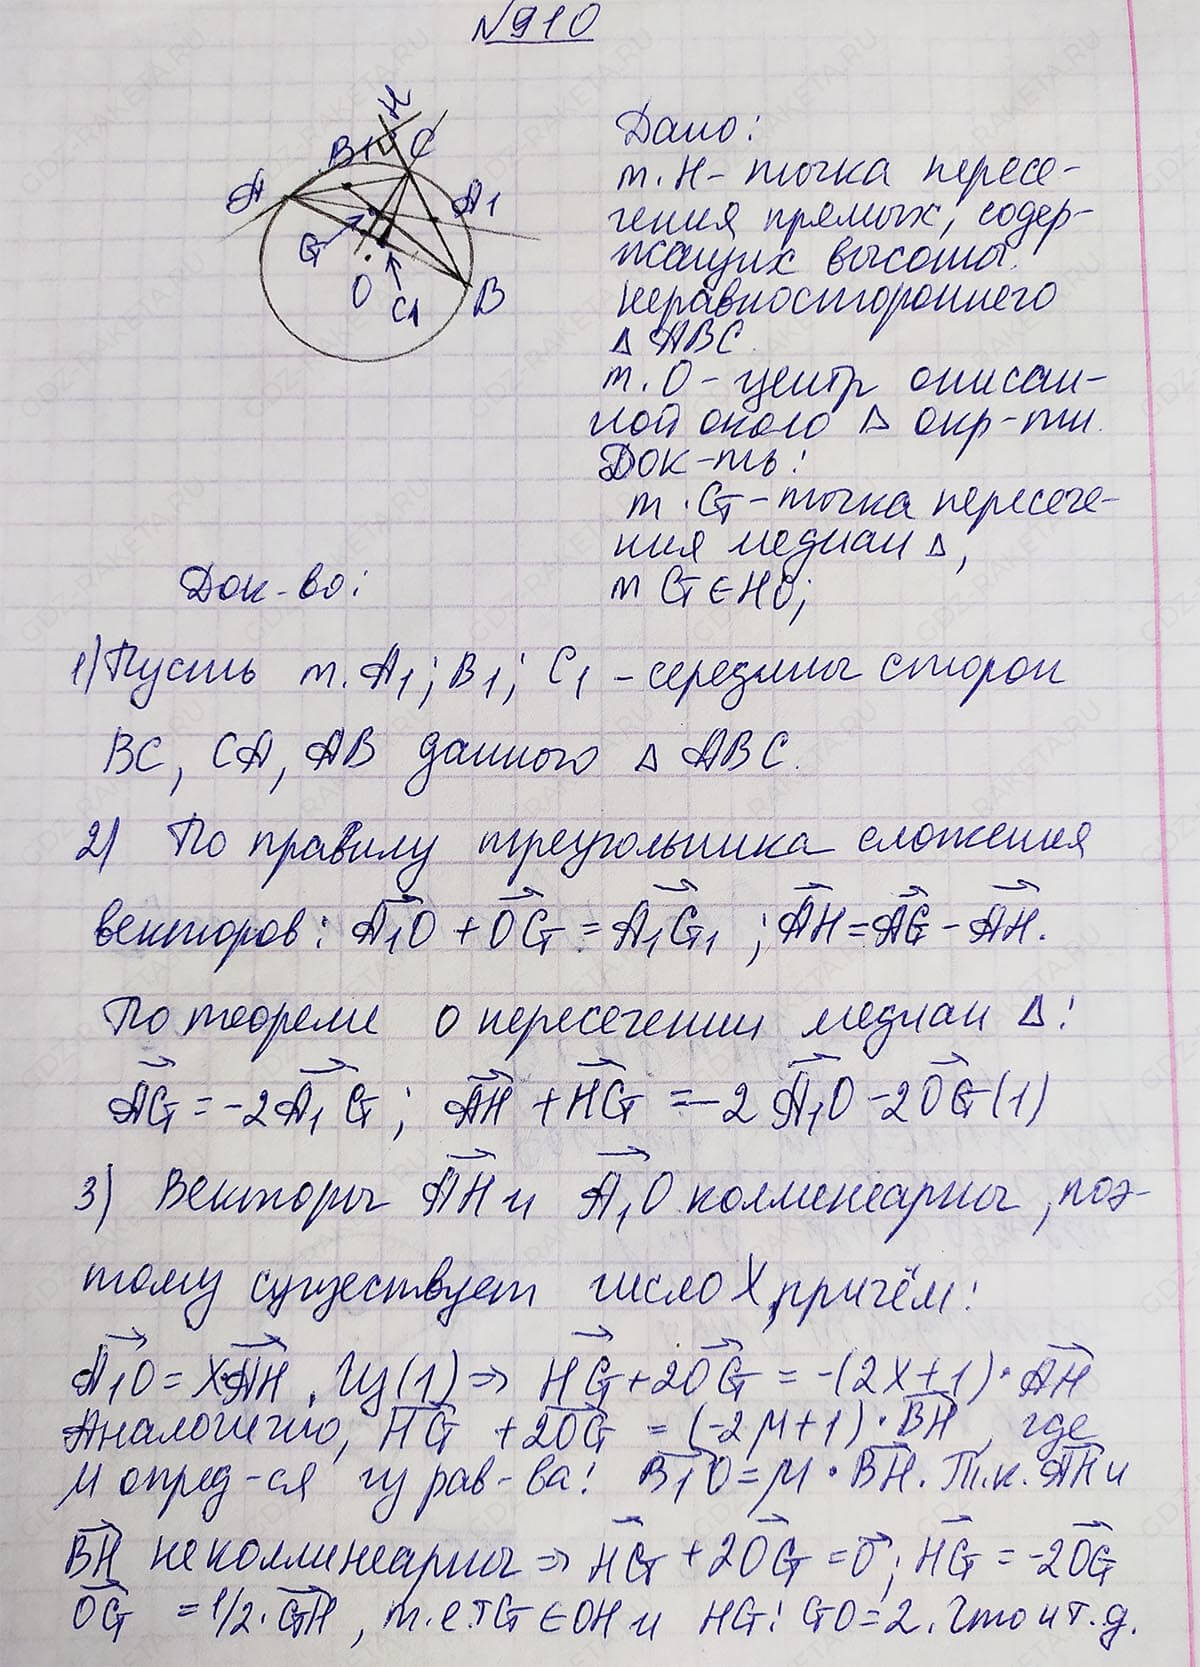 №910
H
B1 C
A A1
G
O C1 B
Дано:
т. H - точка пересе-
чения прямых, содер-
жащих высоты
неравностороннего
△ ABC
т. O - центр описан-
ной около △ окр-ти.
Док-ть:
т. G - точка пересече-
ния медиан △,
т G ∈ HO;
Док-во:
1) Пусть т. A1; B1; C1 - середины сторон
BC, CA, AB данного △ ABC.
2) По правилу треугольника сложения
векторов: A₁O + OG = A₁G₁ ; AH = AG - AH.
По теореме о пересечении медиан △:
AG = -2A₁G; AH + HG = -2 A₁O - 2OG (1)
3) Векторы AH и A₁O коллинеарны, поэ-
тому существует число X, причём:
A₁O = X·AH. Из (1) => HG + 2OG = -(2X+1)·AH
Аналогично, HG + 2OG = (-2M+1)·BH, где
M опред-ся из рав-ва: B₁O = M·BH. Т.к. AH и
BH неколлинеарны => HG + 2OG = O; HG = -2OG
OG = 1/2·GH, т.е. т G ∈ OH и HG : GO = 2. Что и т.д.
GDZ-RAKETA.RU